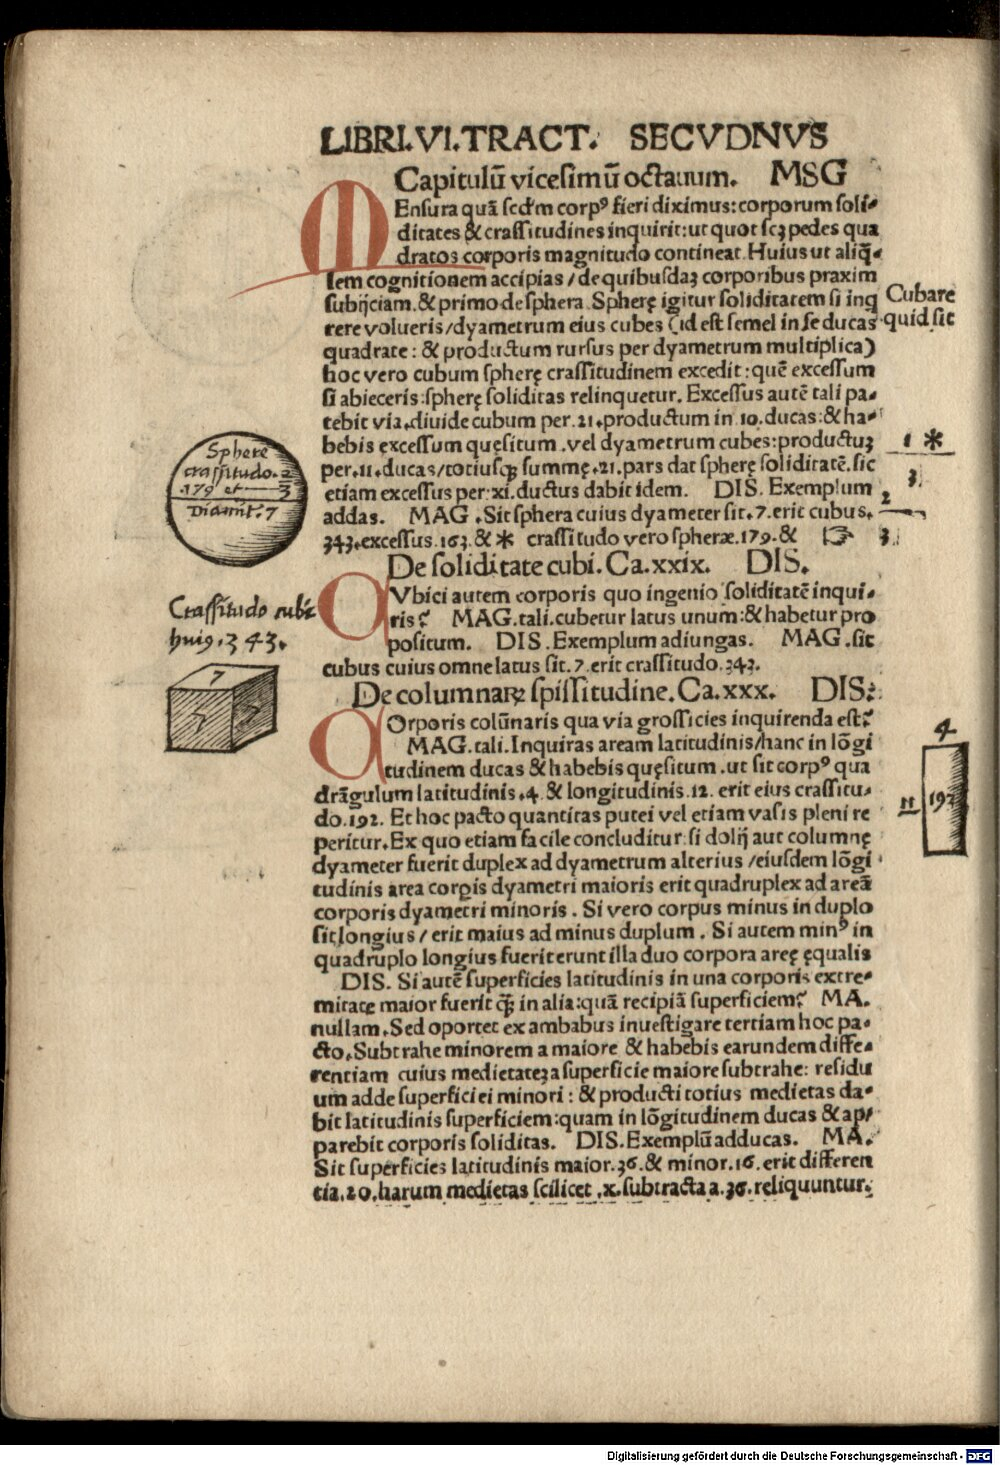 LIBRI.VI.TRACT. SECVDNVS
Capitulū vicesimū octauum. MSG
MEnsura quā scđm corpꝰ fieri diximus: corporum soli-
ditates & crassitudines inquirit: ut quot scꝫ pedes qua
dratos corporis magnitudo contineat. Huius ut aliq̄-
lem cognitionem accipias / de quibusdaꝫ corporibus praxim
subijciam. & primo de sphera. Spherę igitur soliditatem si inq
rere volueris / dyametrum eius cubes (id est semel in se ducas
quadrate: & productum rursus per dyametrum multiplica)
hoc vero cubum spherę crassitudinem excedit: quē excessum
si abieceris: spherę soliditas relinquetur. Excessus autē tali pa-
tebit via. diuide cubum per. 21. productum in. 10. ducas: & ha-
bebis excessum quęsitum. vel dyametrum cubes: productuꝫ
per. 11. ducas / totiusqꝫ summę. 21. pars dat spherę soliditatē. sic
etiam excessus per: xi. ductus dabit idem. DIS. Exemplum
addas. MAG. Sit sphera cuius dyameter sit. 7. erit cubus.
343. excessus. 163. & * crassitudo vero spheræ. 179. & ☞
Cubare
quid sit
1 *
3
2
3
Sphere
crassitudo.
179 et 2
3
Diamīt. 7
De soliditate cubi. Ca. xxix. DIS.
CVbici autem corporis quo ingenio soliditatē inqui-
ris? MAG. tali. cubetur latus unum: & habetur pro
positum. DIS. Exemplum adiungas. MAG. sit
cubus cuius omne latus sit. 7. erit crassitudo. 343.
Crassitudo cubi
huiꝰ. 343.
7
7
7
De columnarꝝ spissitudine. Ca. xxx. DIS.
COrporis colūnaris qua via grossicies inquirenda est?
MAG. tali. Inquiras aream latitudinis / hanc in lōgi
tudinem ducas & habebis quęsitum. ut sit corpꝰ qua
drāgulum latitudinis. 4. & longitudinis. 12. erit eius crassitu-
do. 192. Et hoc pacto quantitas putei vel etiam vasis pleni re
peritur. Ex quo etiam facile concluditur: si dolij aut columnę
dyameter fuerit duplex ad dyametrum alterius / eiusdem lōgi
tudinis area corꝑis dyametri maioris erit quadruplex ad areā
corporis dyametri minoris. Si vero corpus minus in duplo
sit longius / erit maius ad minus duplum. Si autem minꝰ in
quadruplo longius fuerit erunt illa duo corpora areę ęqualis
DIS. Si autē superficies latitudinis in una corporis extre-
mitate maior fuerit qꝫ̄ in alia: quā recipiā superficiem? MA.
nullam. Sed oportet ex ambabus inuestigare tertiam hoc pa-
cto. Subtrahe minorem a maiore & habebis earundem diffe-
rentiam cuius medietateꝫ a superficie maiore subtrahe: residu
um adde superficiei minori: & producti totius medietas da-
bit latitudinis superficiem: quam in lōgitudinem ducas & ap/
parebit corporis soliditas. DIS. Exemplū adducas. MA.
Sit superficies latitudinis maior. 36. & minor. 16. erit differen
tia. 20. harum medietas scilicet. x. subtracta a. 36. reliquuntur.
4
192
Digitalisierung gefördert durch die Deutsche Forschungsgemeinschaft - DFG